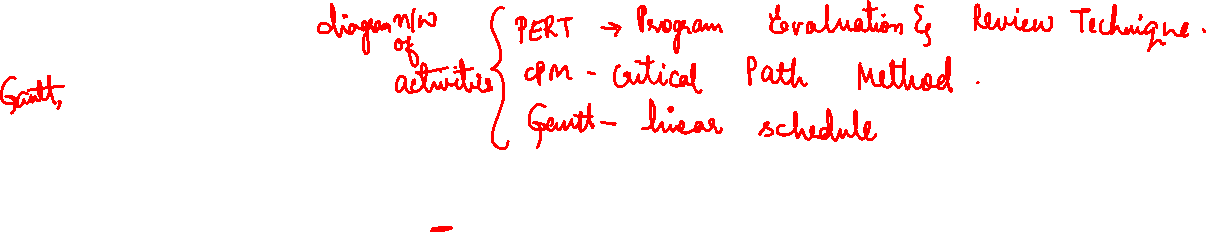 diagram n/w of activities { PERT → Program Evaluation & Review Technique.
CPM - Critical Path Method.
Gantt - linear schedule
Gantt,